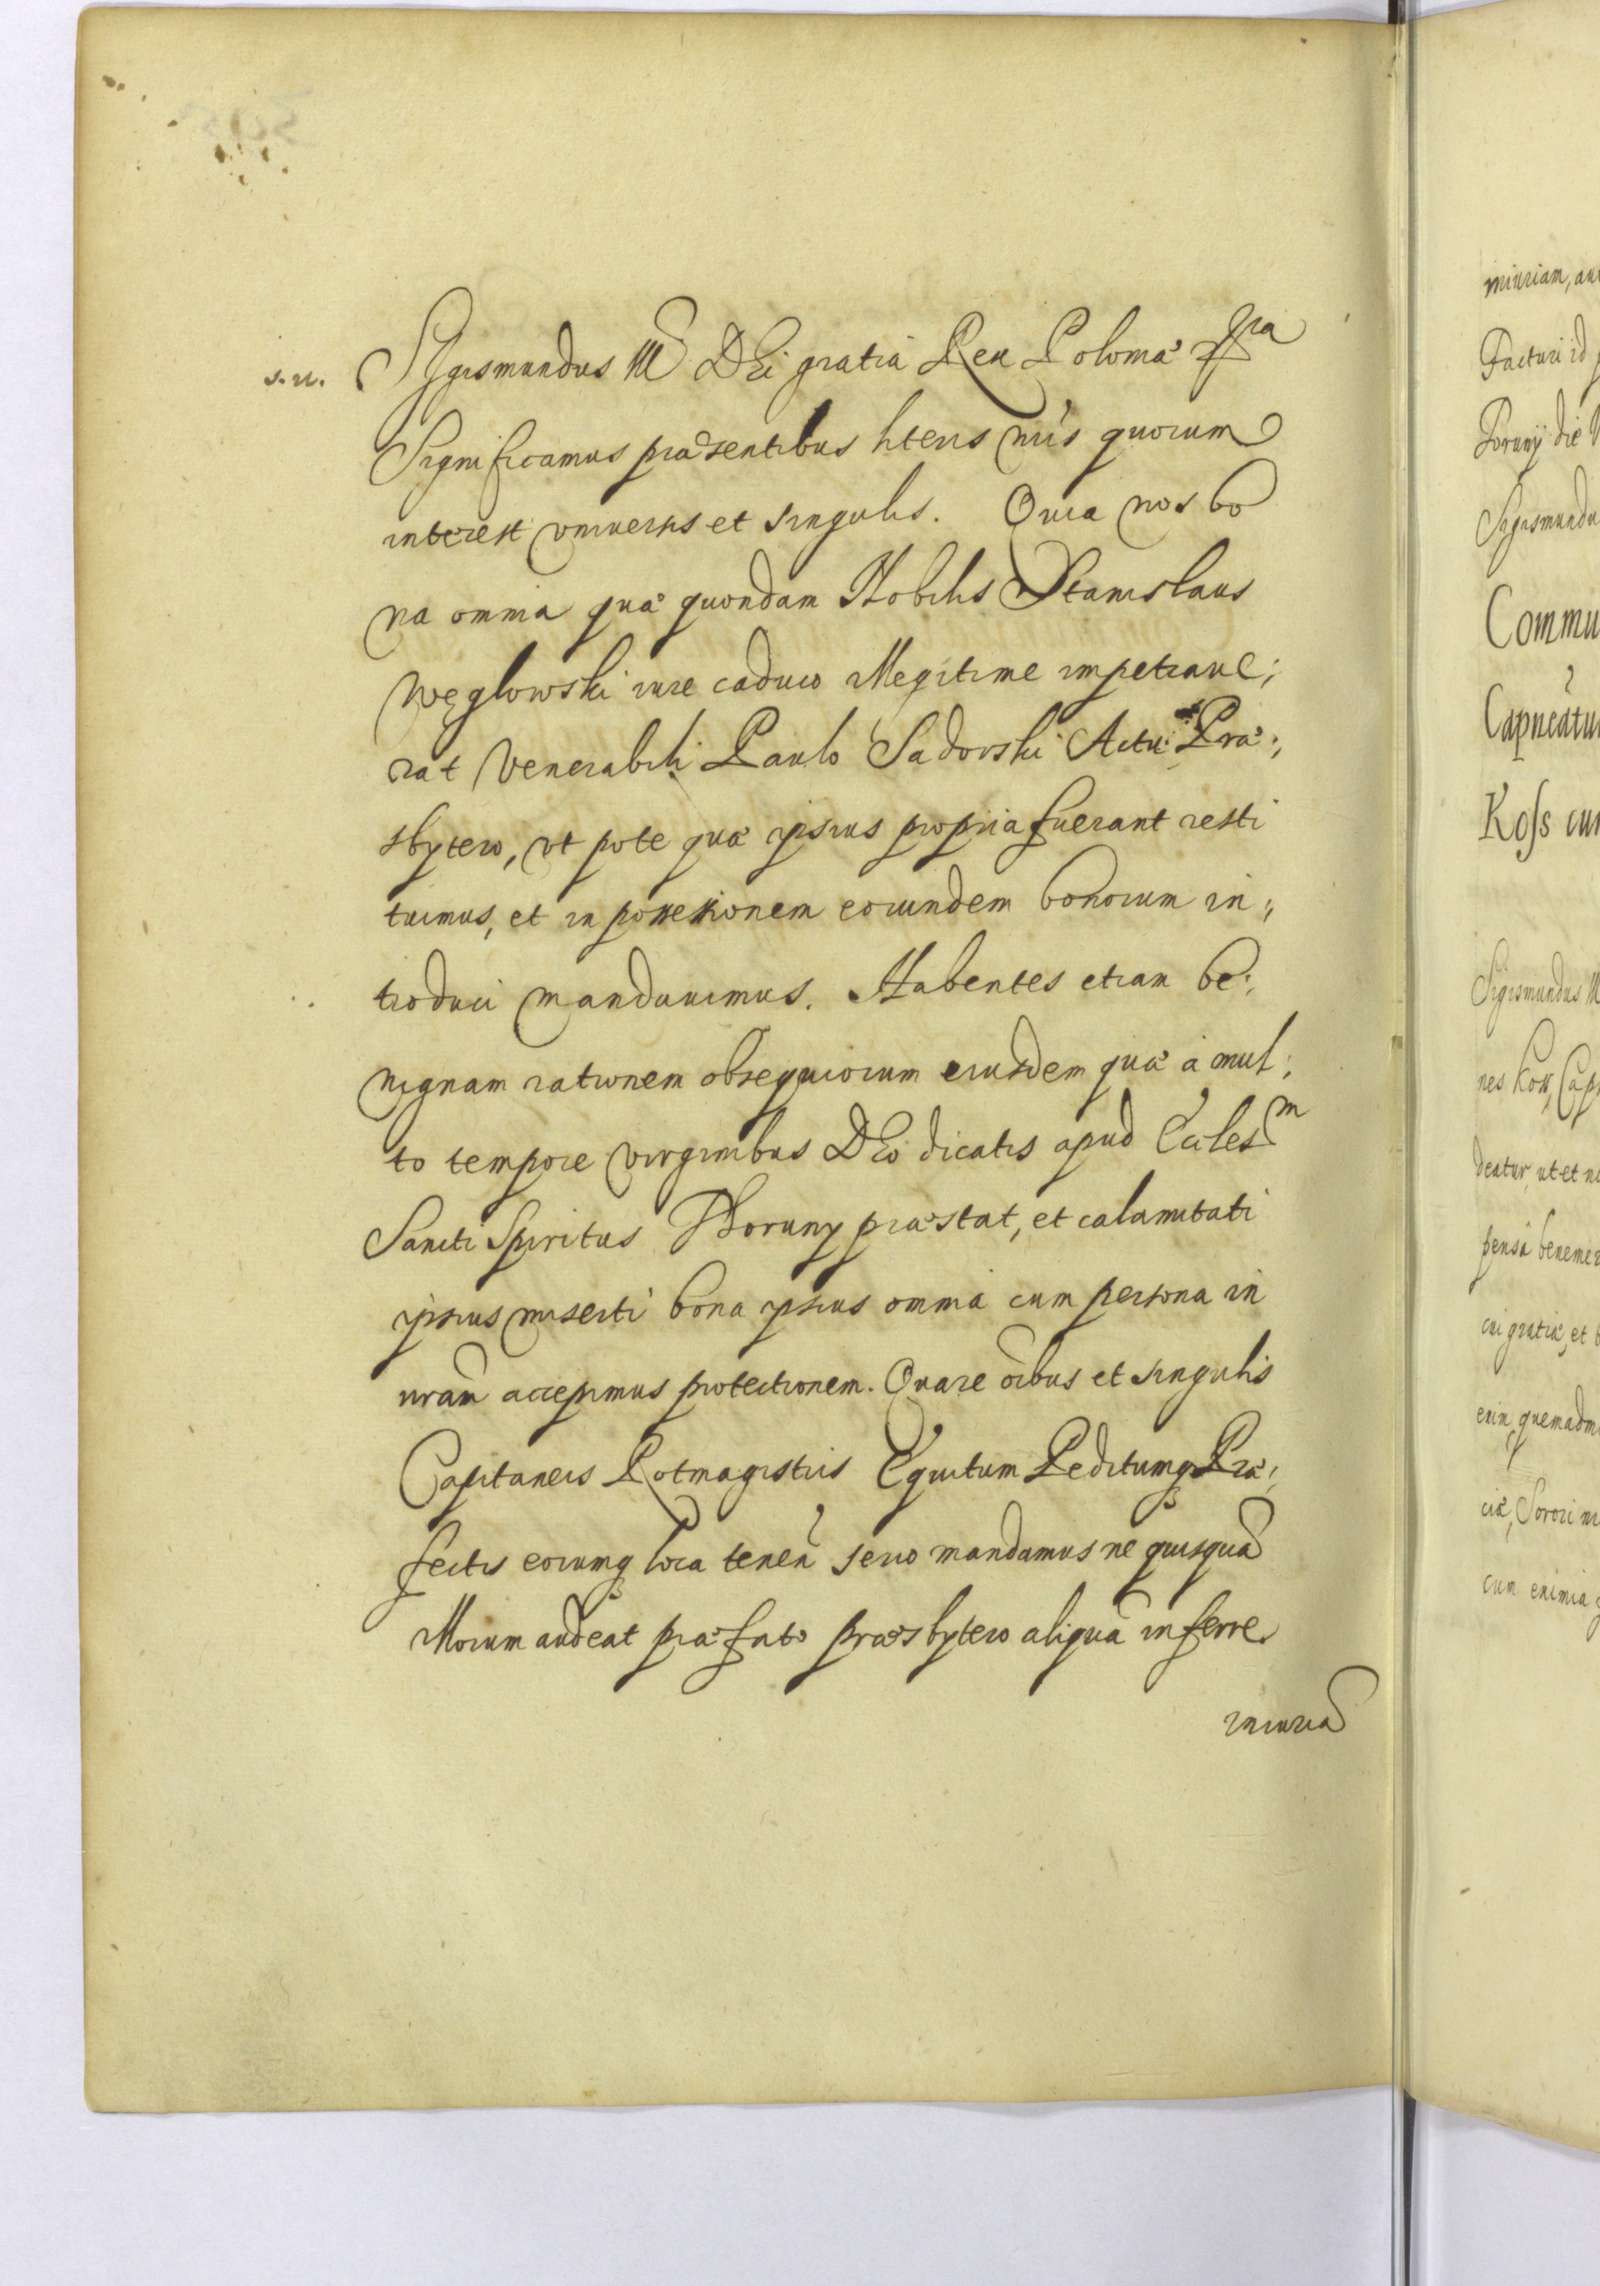 s. n. Sygismundus III DEi gratia Rex Poloniæ &cra
Significamus præsentibus literis nris quorum
interest vniuersis et singulis. Quia nos bo
na omnia quæ quondam Nobilis Stanislaus
Węglowski iure caduco illegitime impetraue;
rat Venerabili Paulo Sadorski Actu: Præ:,
sbytero, vt pote quæ ipsius propria fuerant resti
tuimus, et in possessionem eorundem bonorum in:,
troduci mandauimus. Habentes etiam be:,
nignam rationem obsequiorum eiusdem quæ à mul:,
to tempore virginibus DEo dicatis apud Ecclesm
Sancti Spiritus Thoruny præstat, et calamitati
ipsius miserti bona ipsius omnia cum persona in
nram accepimus protectionem. Quare oibus et singulis
Capitaneis Rotmagistris Equitum Peditumq Præ:,
fectis eorumq loca tenen serio mandamus ne quisquã
illorum audeat præfato præsbytero aliquã inferre
iniuriã
iniuriam, au
Facturi id
Toruny die
Sigismundu
Commu
Capneatu
Koss cum
Sigismundus III
nes Koss, Cap
deatur, ut et no
pensa benemer
cui gratiæ, et b
erin quemadm
ciæ, Sorori nr
cum eximia